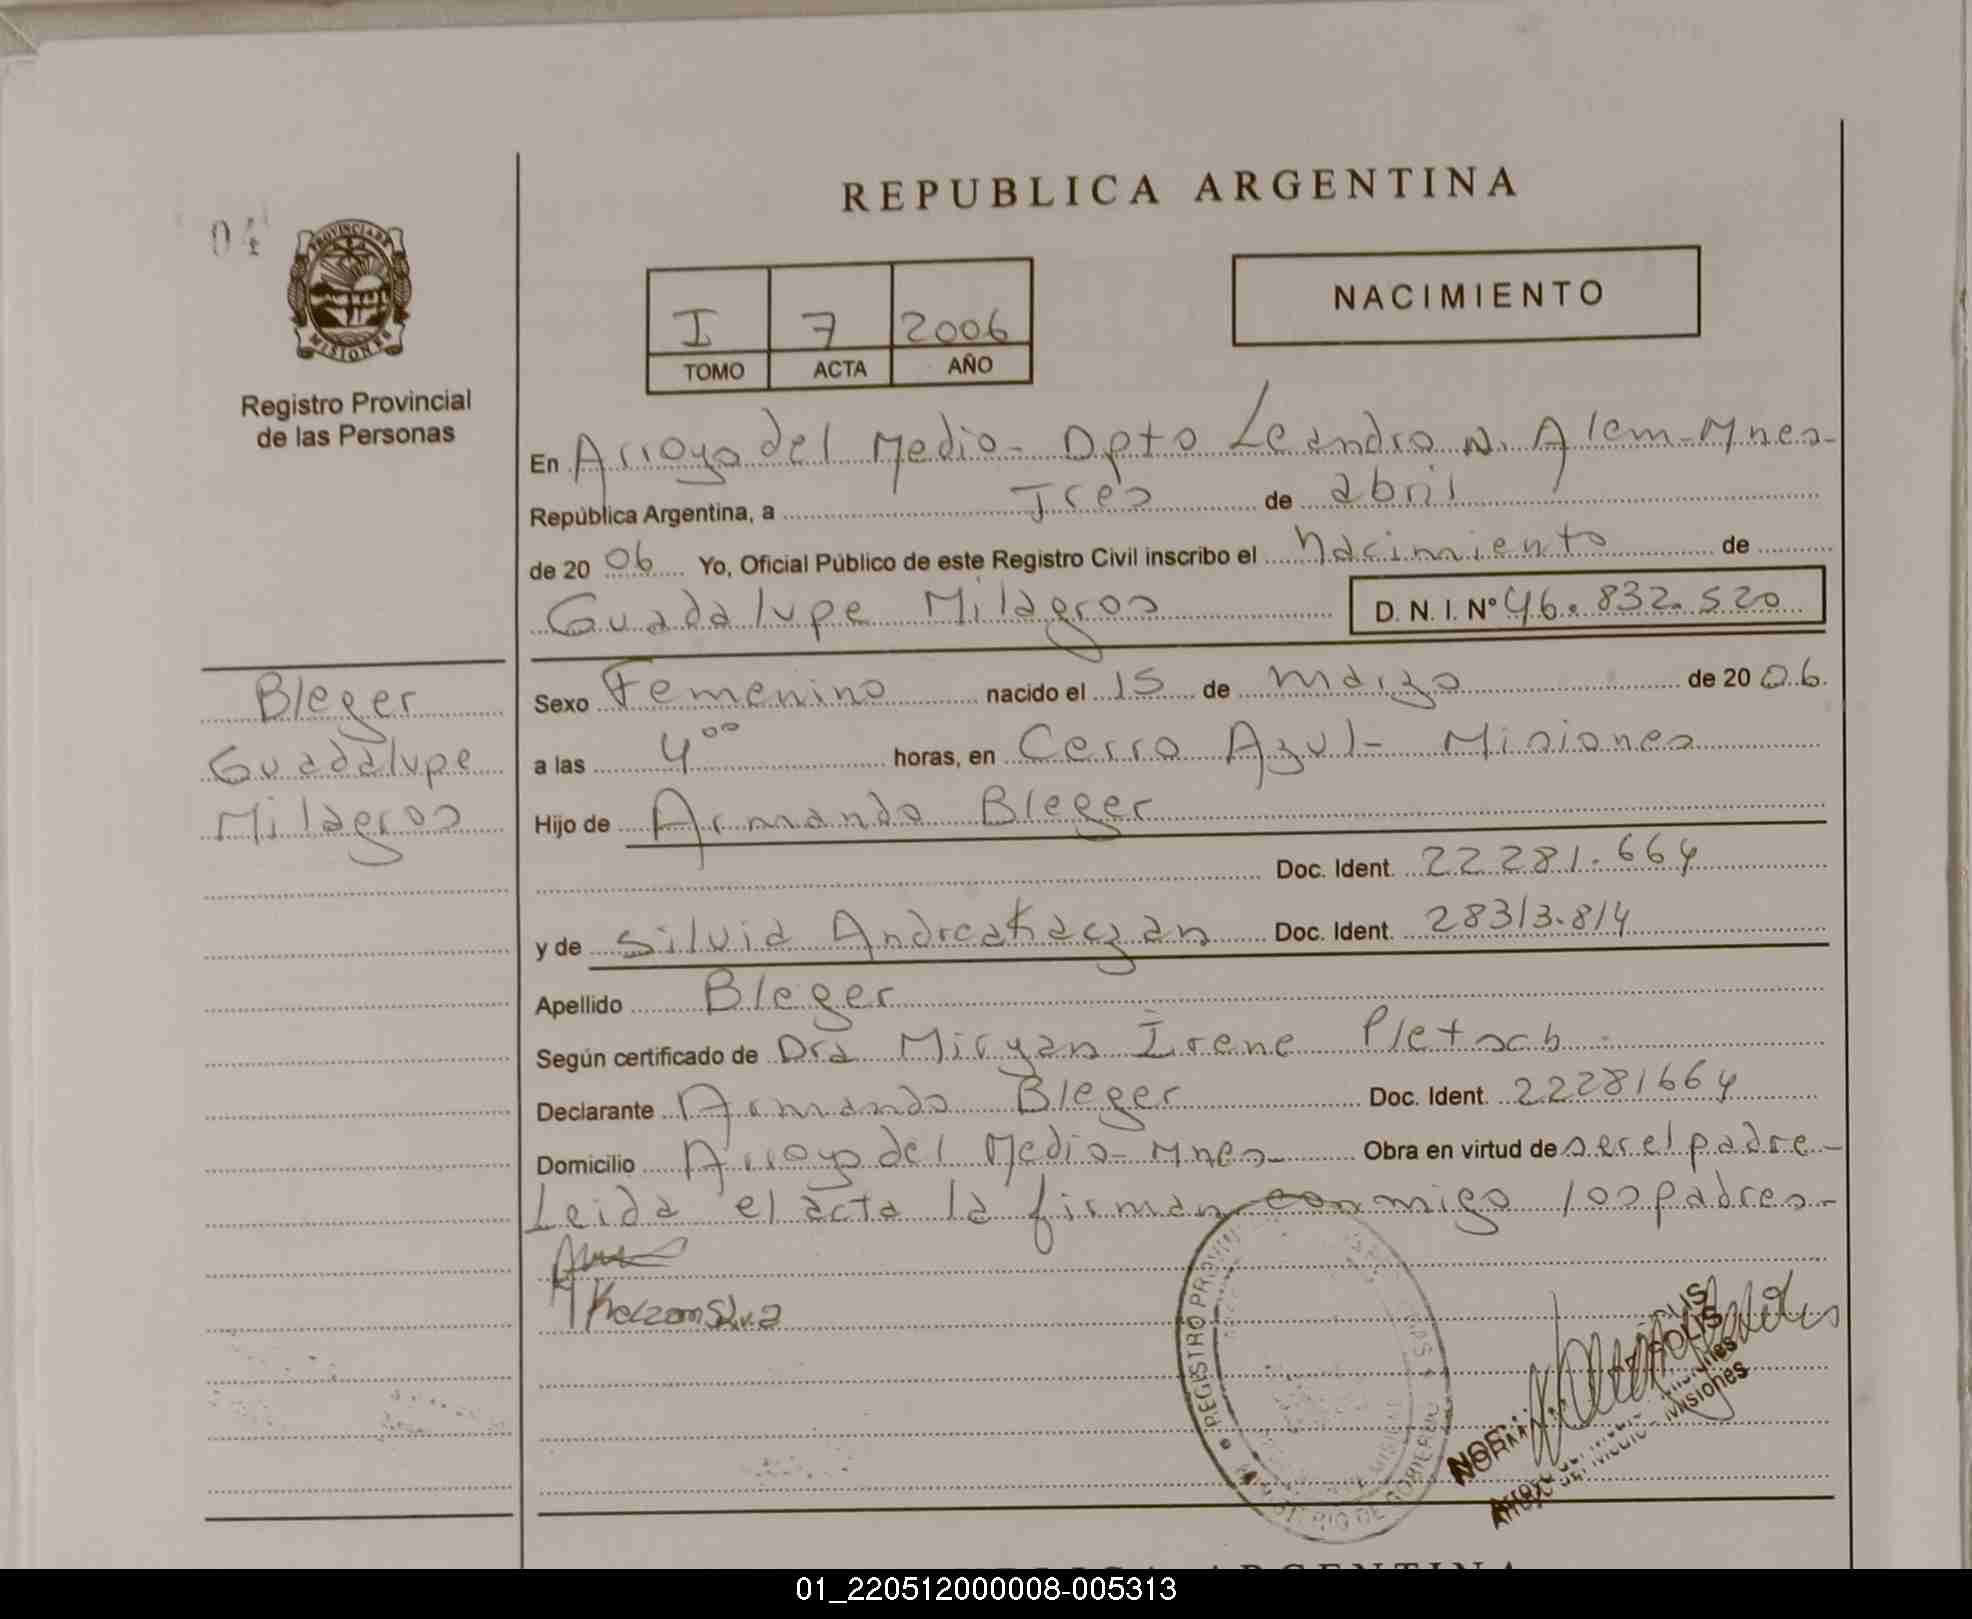 REPUBLICA ARGENTINA
04
PROVINCIA DE
MISIONES
Registro Provincial
de las Personas
I 7 2006
TOMO ACTA AÑO
NACIMIENTO
En Arroyo del Medio - Dpto Leandro N. Alem - Mnes -
República Argentina, a Tres de abril
de 2006 Yo, Oficial Público de este Registro Civil inscribo el nacimiento de
Guadalupe Milagros D. N. I. N° 46.832.520
Bleger
Guadalupe
Milagros
Sexo Femenino nacido el 15 de marzo de 2006.
a las 4°° horas, en Cerro Azul - Misiones
Hijo de Armando Bleger
Doc. Ident. 22281.664
y de Silvia Andrea Kaczan Doc. Ident. 28313.814
Apellido Bleger
Según certificado de Dra Miryan Irene Pletsch
Declarante Armando Bleger Doc. Ident. 22281664
Domicilio Arroyo del Medio - Mnes - Obra en virtud de ser el padre -
Leida el acta la firman conmigo los padres -
REGISTRO
MINISTERIO DE GOBIERNO
Misiones
01_220512000008-005313